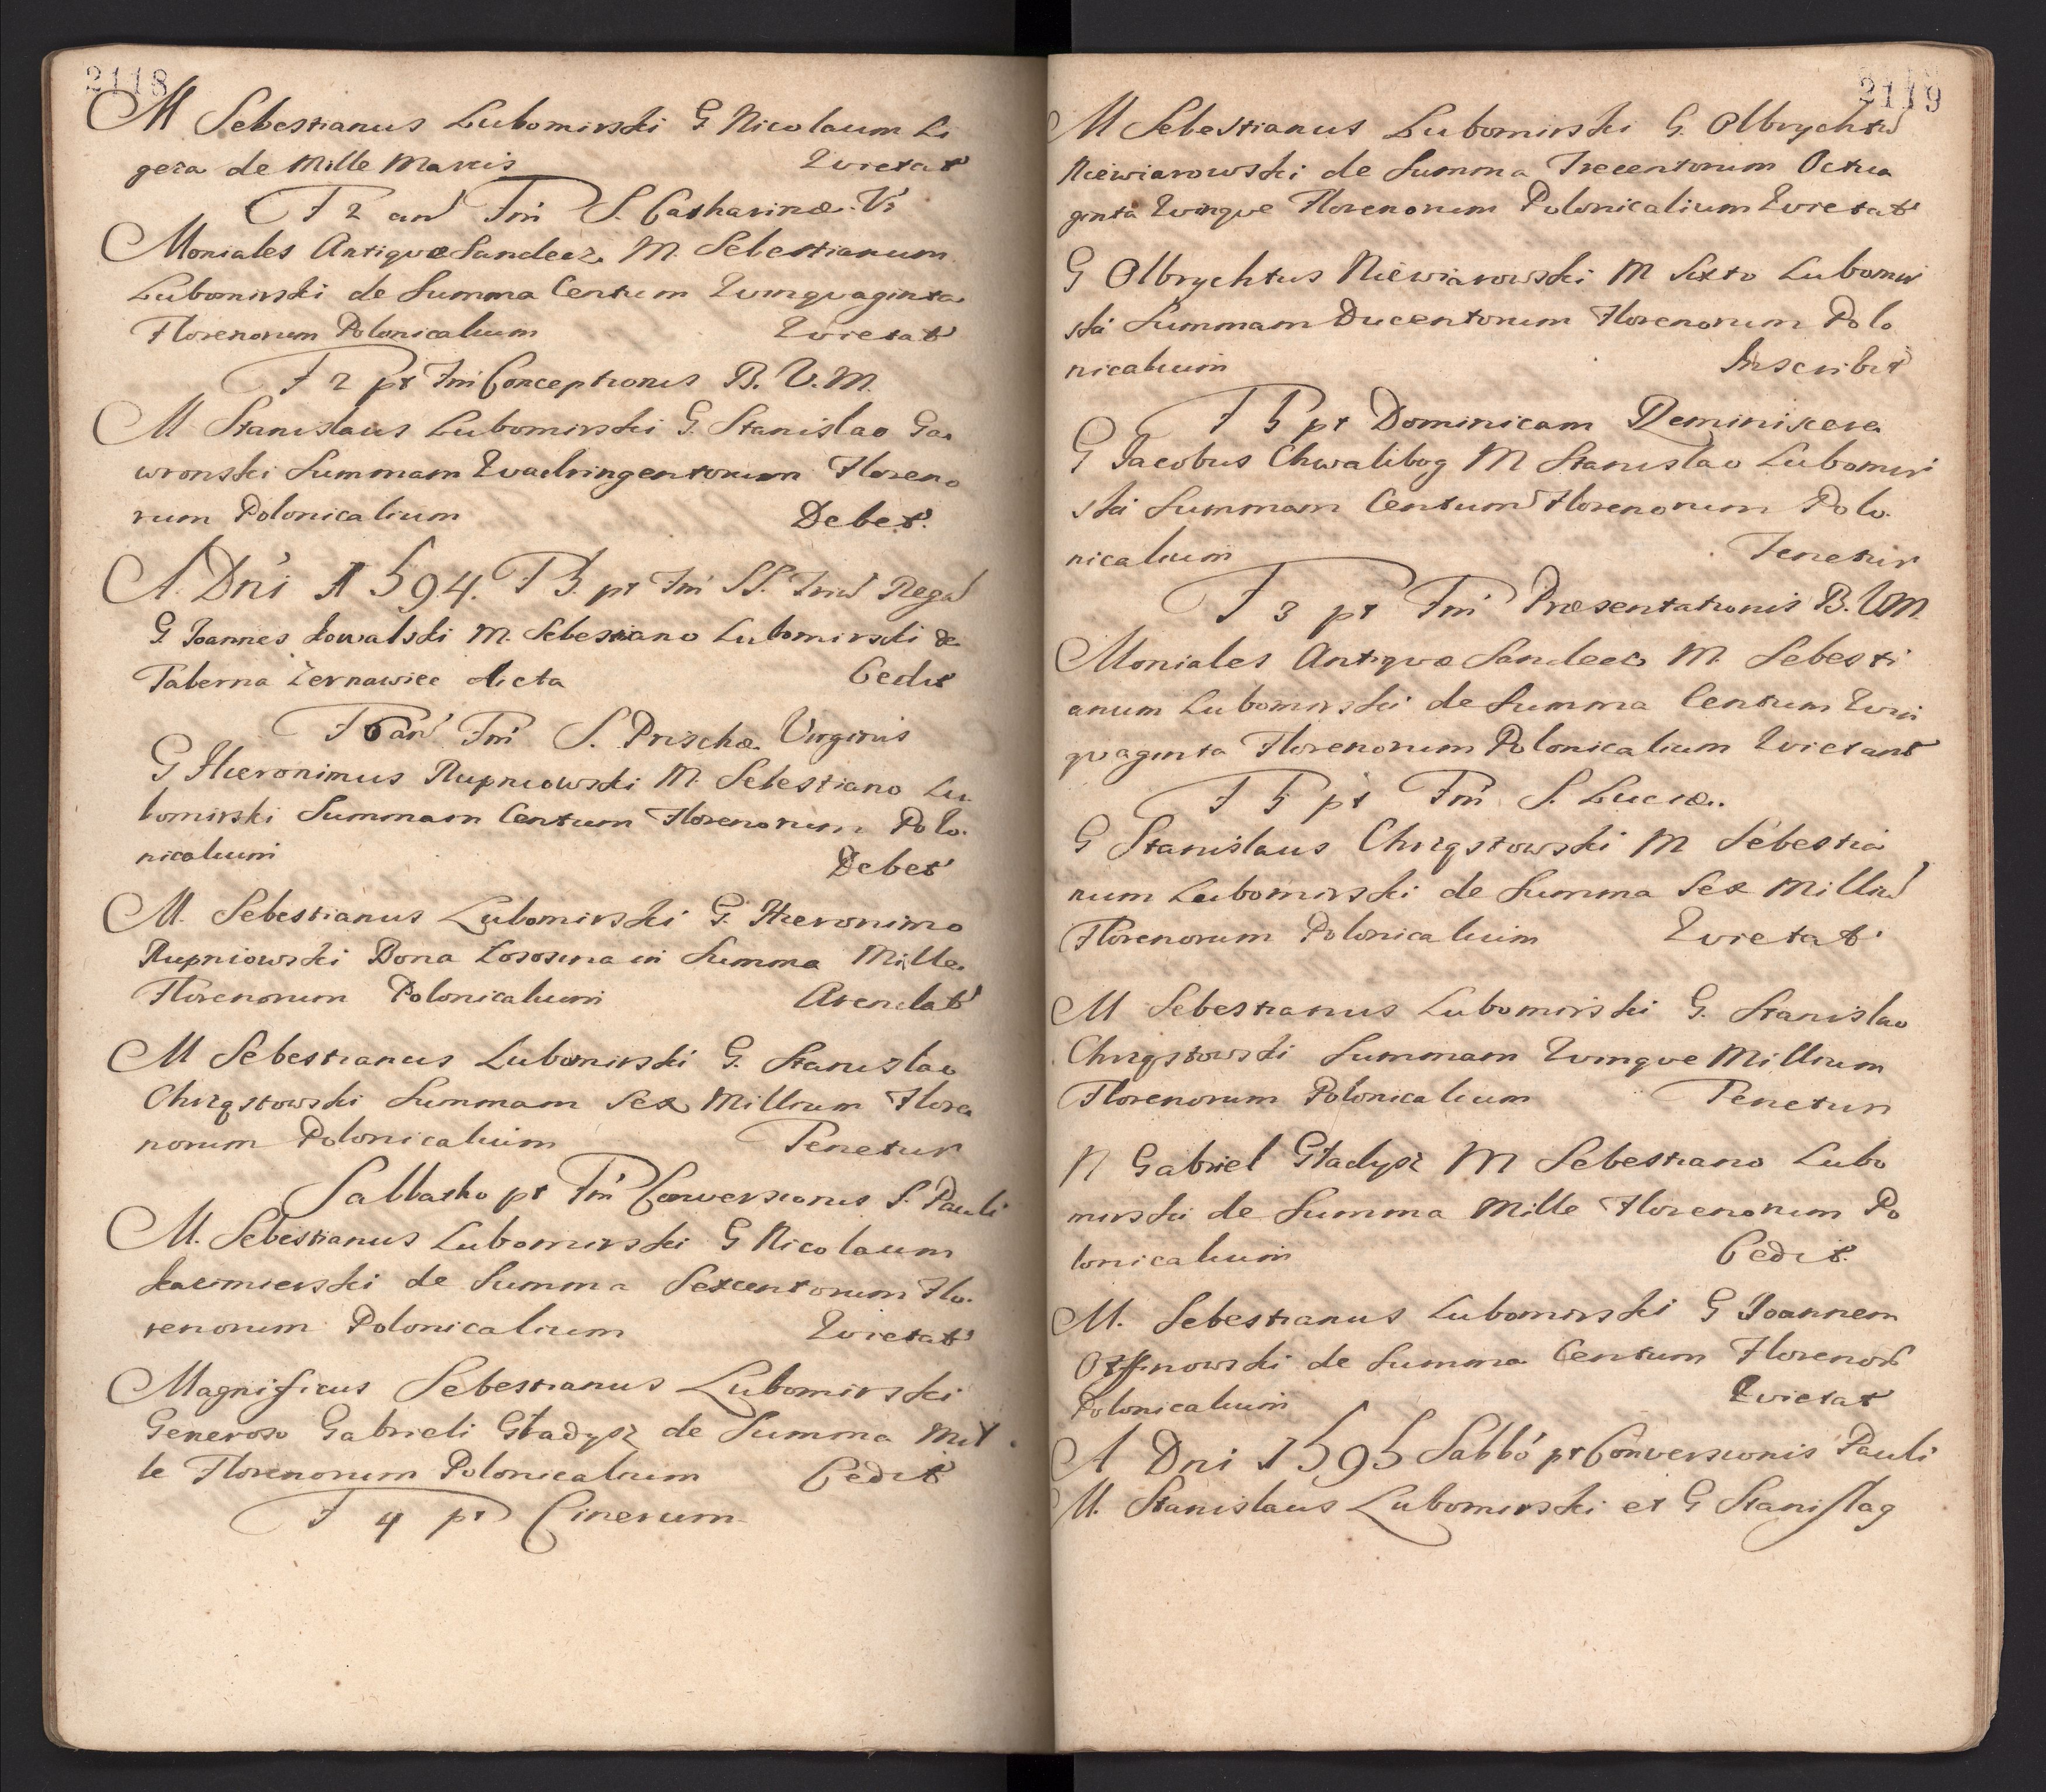 2118
M Sebestianus Lubomirski G Nicolaum Li
geza de Mille Marcis Qvietat
F 2 an Fm S. Catharinæ Vi
Moniales Antiqvæ Sandecz. M. Sebestianum
Lubomirski de Summa Centum Qvinqvaginta
Florenorum Polonicalium Qvietat
F 2 pt Fm Conceptionis B. V. M.
M Stanislaus Lubomirski G. Stanislao Ga
wronski Summam Qvadringentorum Floreno
rum Polonicalium Debet.
A. Dni 1594. F 5. pt Fm SS. Triu Rega
G. Joannes Kowalski M. Sebestiano Lubomirski de
Taberna Zernawiec dicta Cedit
F 6 an Fm S. Prischæ Virginis
G Hieronimus Rupniowski M. Sebestiano Lu
bomirski Summam Centum Florenorum Polo.
nicalium Debet
M. Sebestianus Lubomirski G. Hieronimo
Rupniowski Bona Łososina in Summa Mille
Florenorum Polonicalium Arendat
M Sebestianus Lubomirski G. Stanislao
Chrząstowski Summam Sex Millium Flore
norum Polonicalium Tenetur
Sabbatho pt Fm Conversionis S. Pauli
M. Sebestianus Lubomirski G Nicolaum
Kazimierski de Summa Sexcentorum Flo.
renorum Polonicalium Qvietat
Magnificus Sebestianus Lubomirski
Generoso Gabrieli Gładysz de Summa Mil
le Florenorum Polonicalium Cedit
F 4 pt Cinerum
2119
M Sebestianus Lubomirski G. Olbrychtu
Niewiarowski de Summa Trecentorum Octua
ginta Qvinqve Florenorum Polonicalium Qvietat
G Olbrychtus Niewiarowski M Sexto Lubomir
ski Summam Ducentorum Florenorum Polo
nicalium Inscribit
F 5 pt Dominicam Reminiscere
G Jacobus Chwalibog M Stanislao Lubomir
ski Summam Centum Florenorum Polo.
nicalium Tenetur
F 3 pt Fm Præsentationis B. VM.
Moniales Antiqvæ Sandeec M. Sebesti
anum Lubomirski de Summa Centum Qvin
qvaginta Florenorum Polonicalium Qvietant
F 5 pt Fm S. Luciæ.
G Stanislaus Chrząstowski M Sebestia
num Lubomirski de Summa Sex Milliu
Florenorum Polonicalium Qvietat
M Sebestianus Lubomirski G. Stanislao
Chrząstowski Summam Qvinqve Millium
Florenorum Polonicalium Tenetur
N Gabriel Gładysz M Sebestiano Lubo
mirski de Summa Mille Florenorum Po
lonicalium Cedit.
M. Sebestianus Lubomirski G Joannem
de Summa Centum Florenor
Polonicalium Qvietat
A Dni 1595 Sabbo pt Conversionis Pauli
M. Stanislaus Lubomirski et G Stanislag